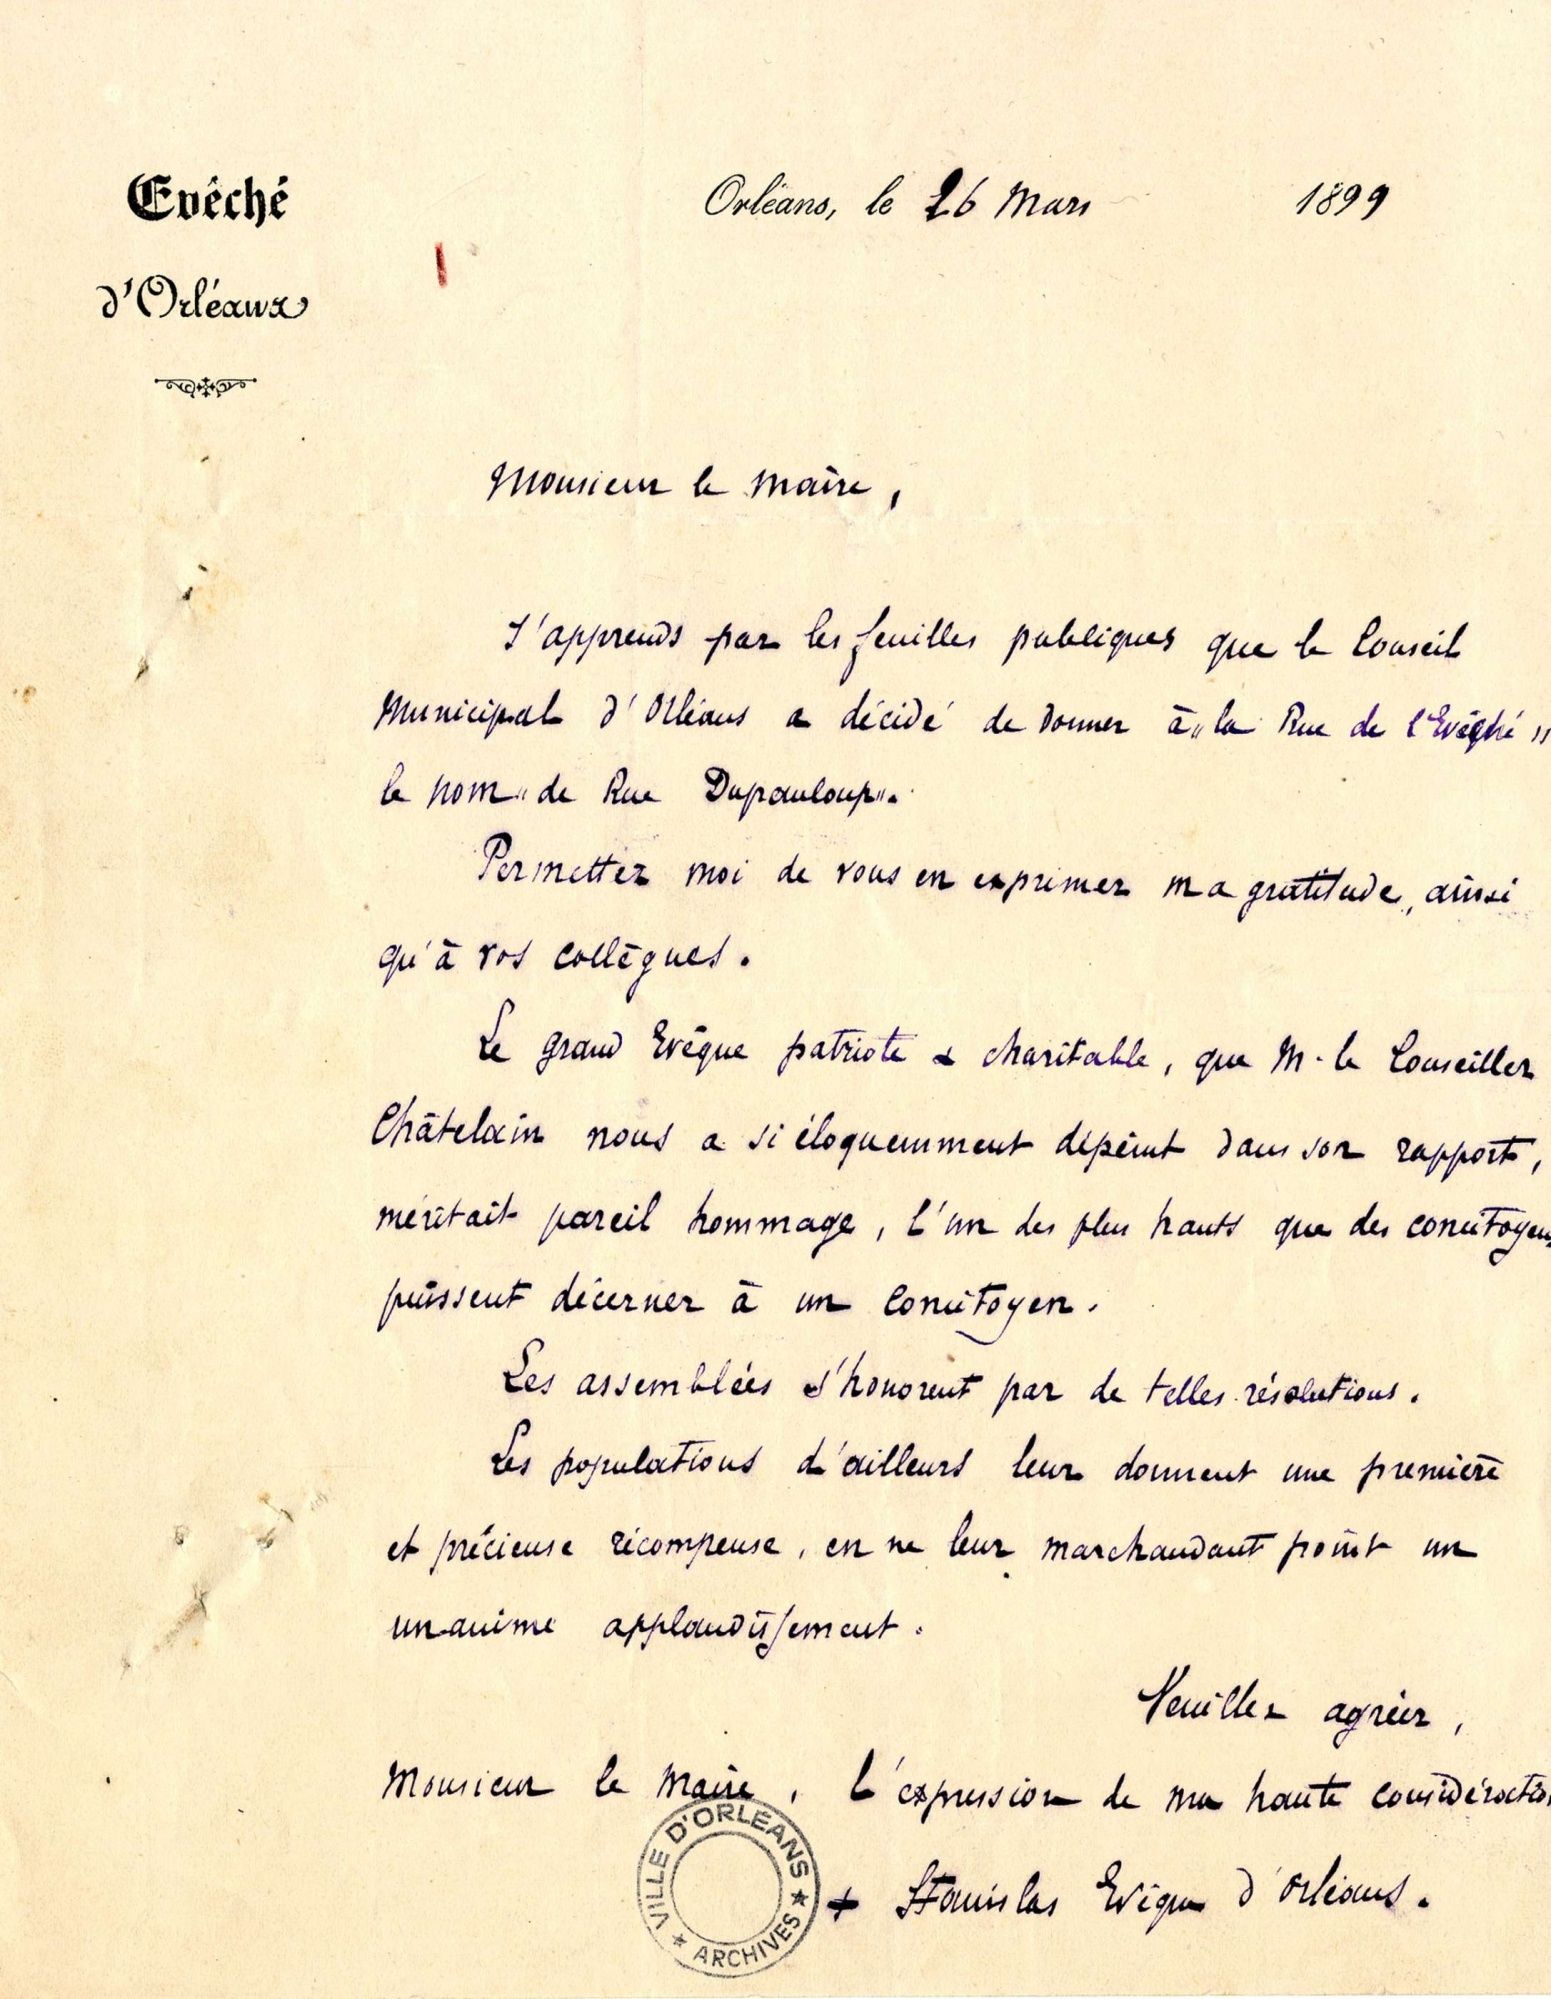 Evêché
d'Orléans
Orléans, le 26 Mars 1899
Monsieur le Maire,
J'apprends par les feuilles publiques que le Conseil
Municipal d'Orléans a décidé de donner à "la Rue de l'Evêché"
le nom "de Rue Dupanloup".
Permettez moi de vous en exprimer ma gratitude, ainsi
qu'à vos collègues.
Le grand Evêque patriote & charitable, que M. le Conseiller
Châtelain nous a si éloquemment dépeint dans son rapport,
méritait pareil hommage, l'un des plus hauts que des concitoyens
puissent décerner à un concitoyen.
Les assemblées s'honorent par de telles résolutions.
Les populations d'ailleurs leur donnent une première
et précieuse récompense, en ne leur marchandant point un
unanime applaudissement.
Veuillez agréer,
Monsieur le Maire, l'expression de ma haute considération
+ Stanislas Evêque d'Orléans.
VILLE D'ORLÉANS
★ ARCHIVES ★